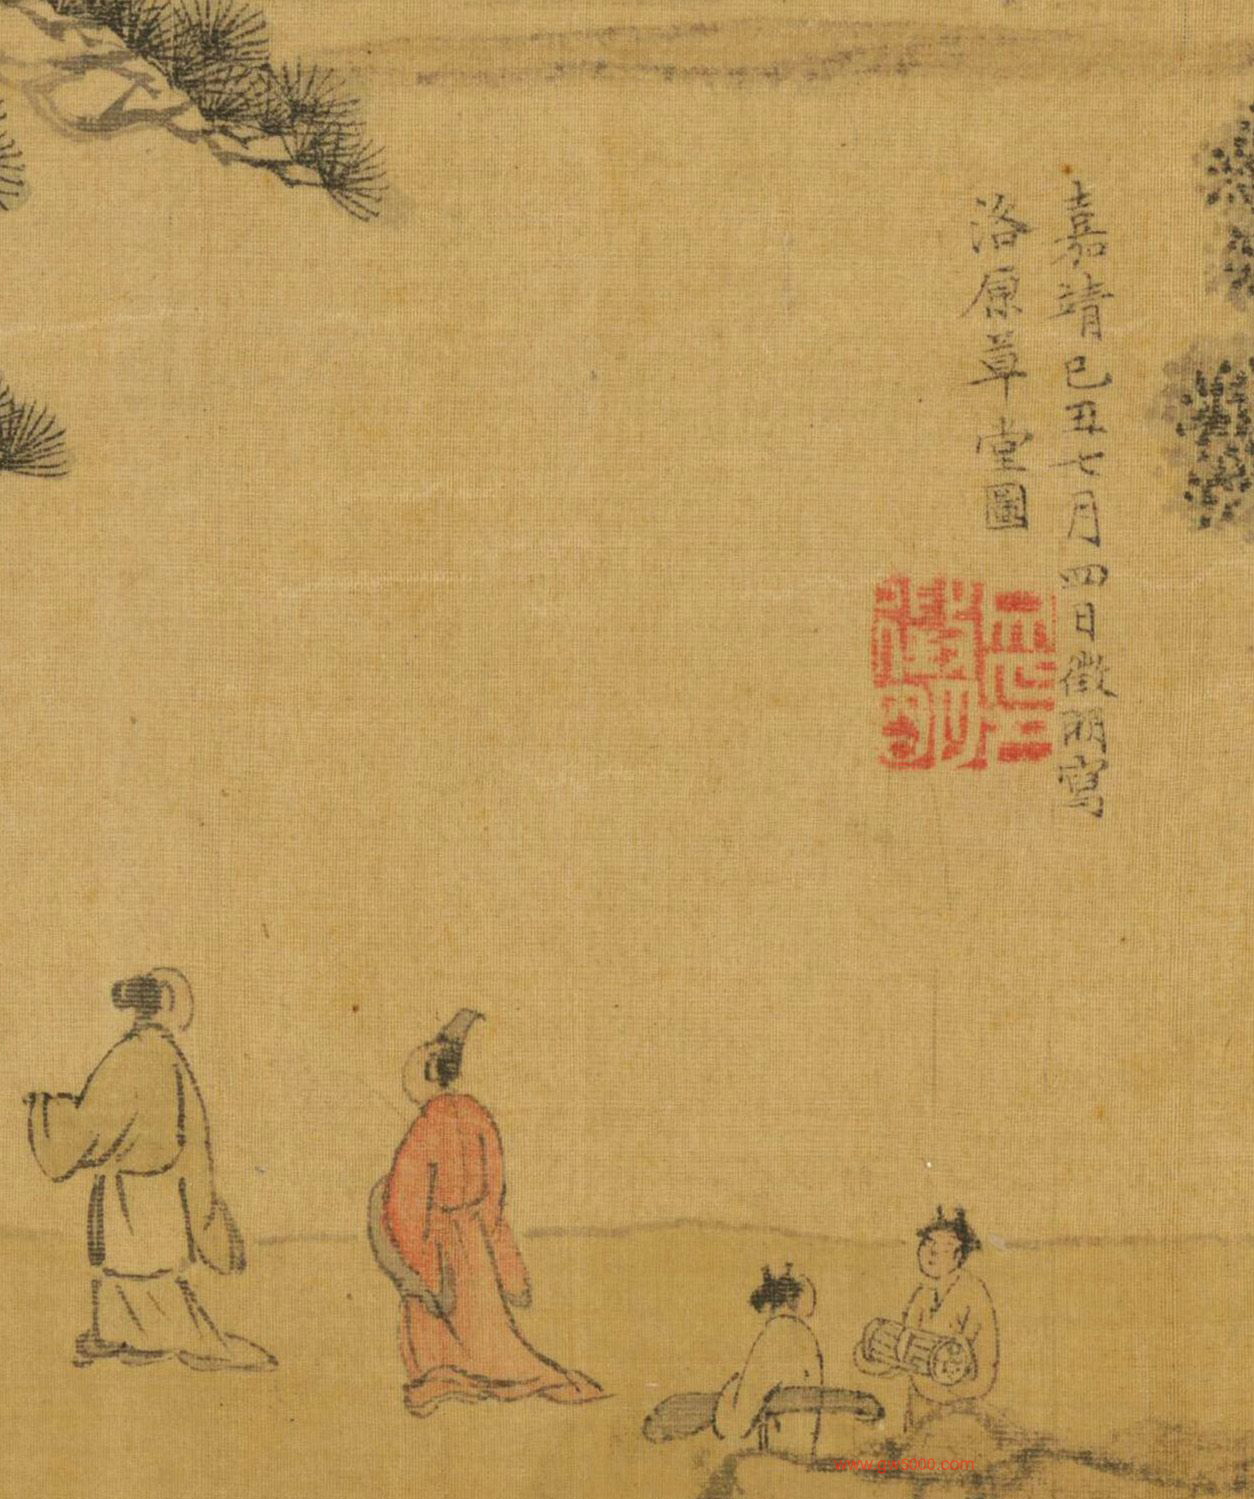 嘉靖己丑七月四日徵明寫
洛原草堂圖
www.gw5000.com